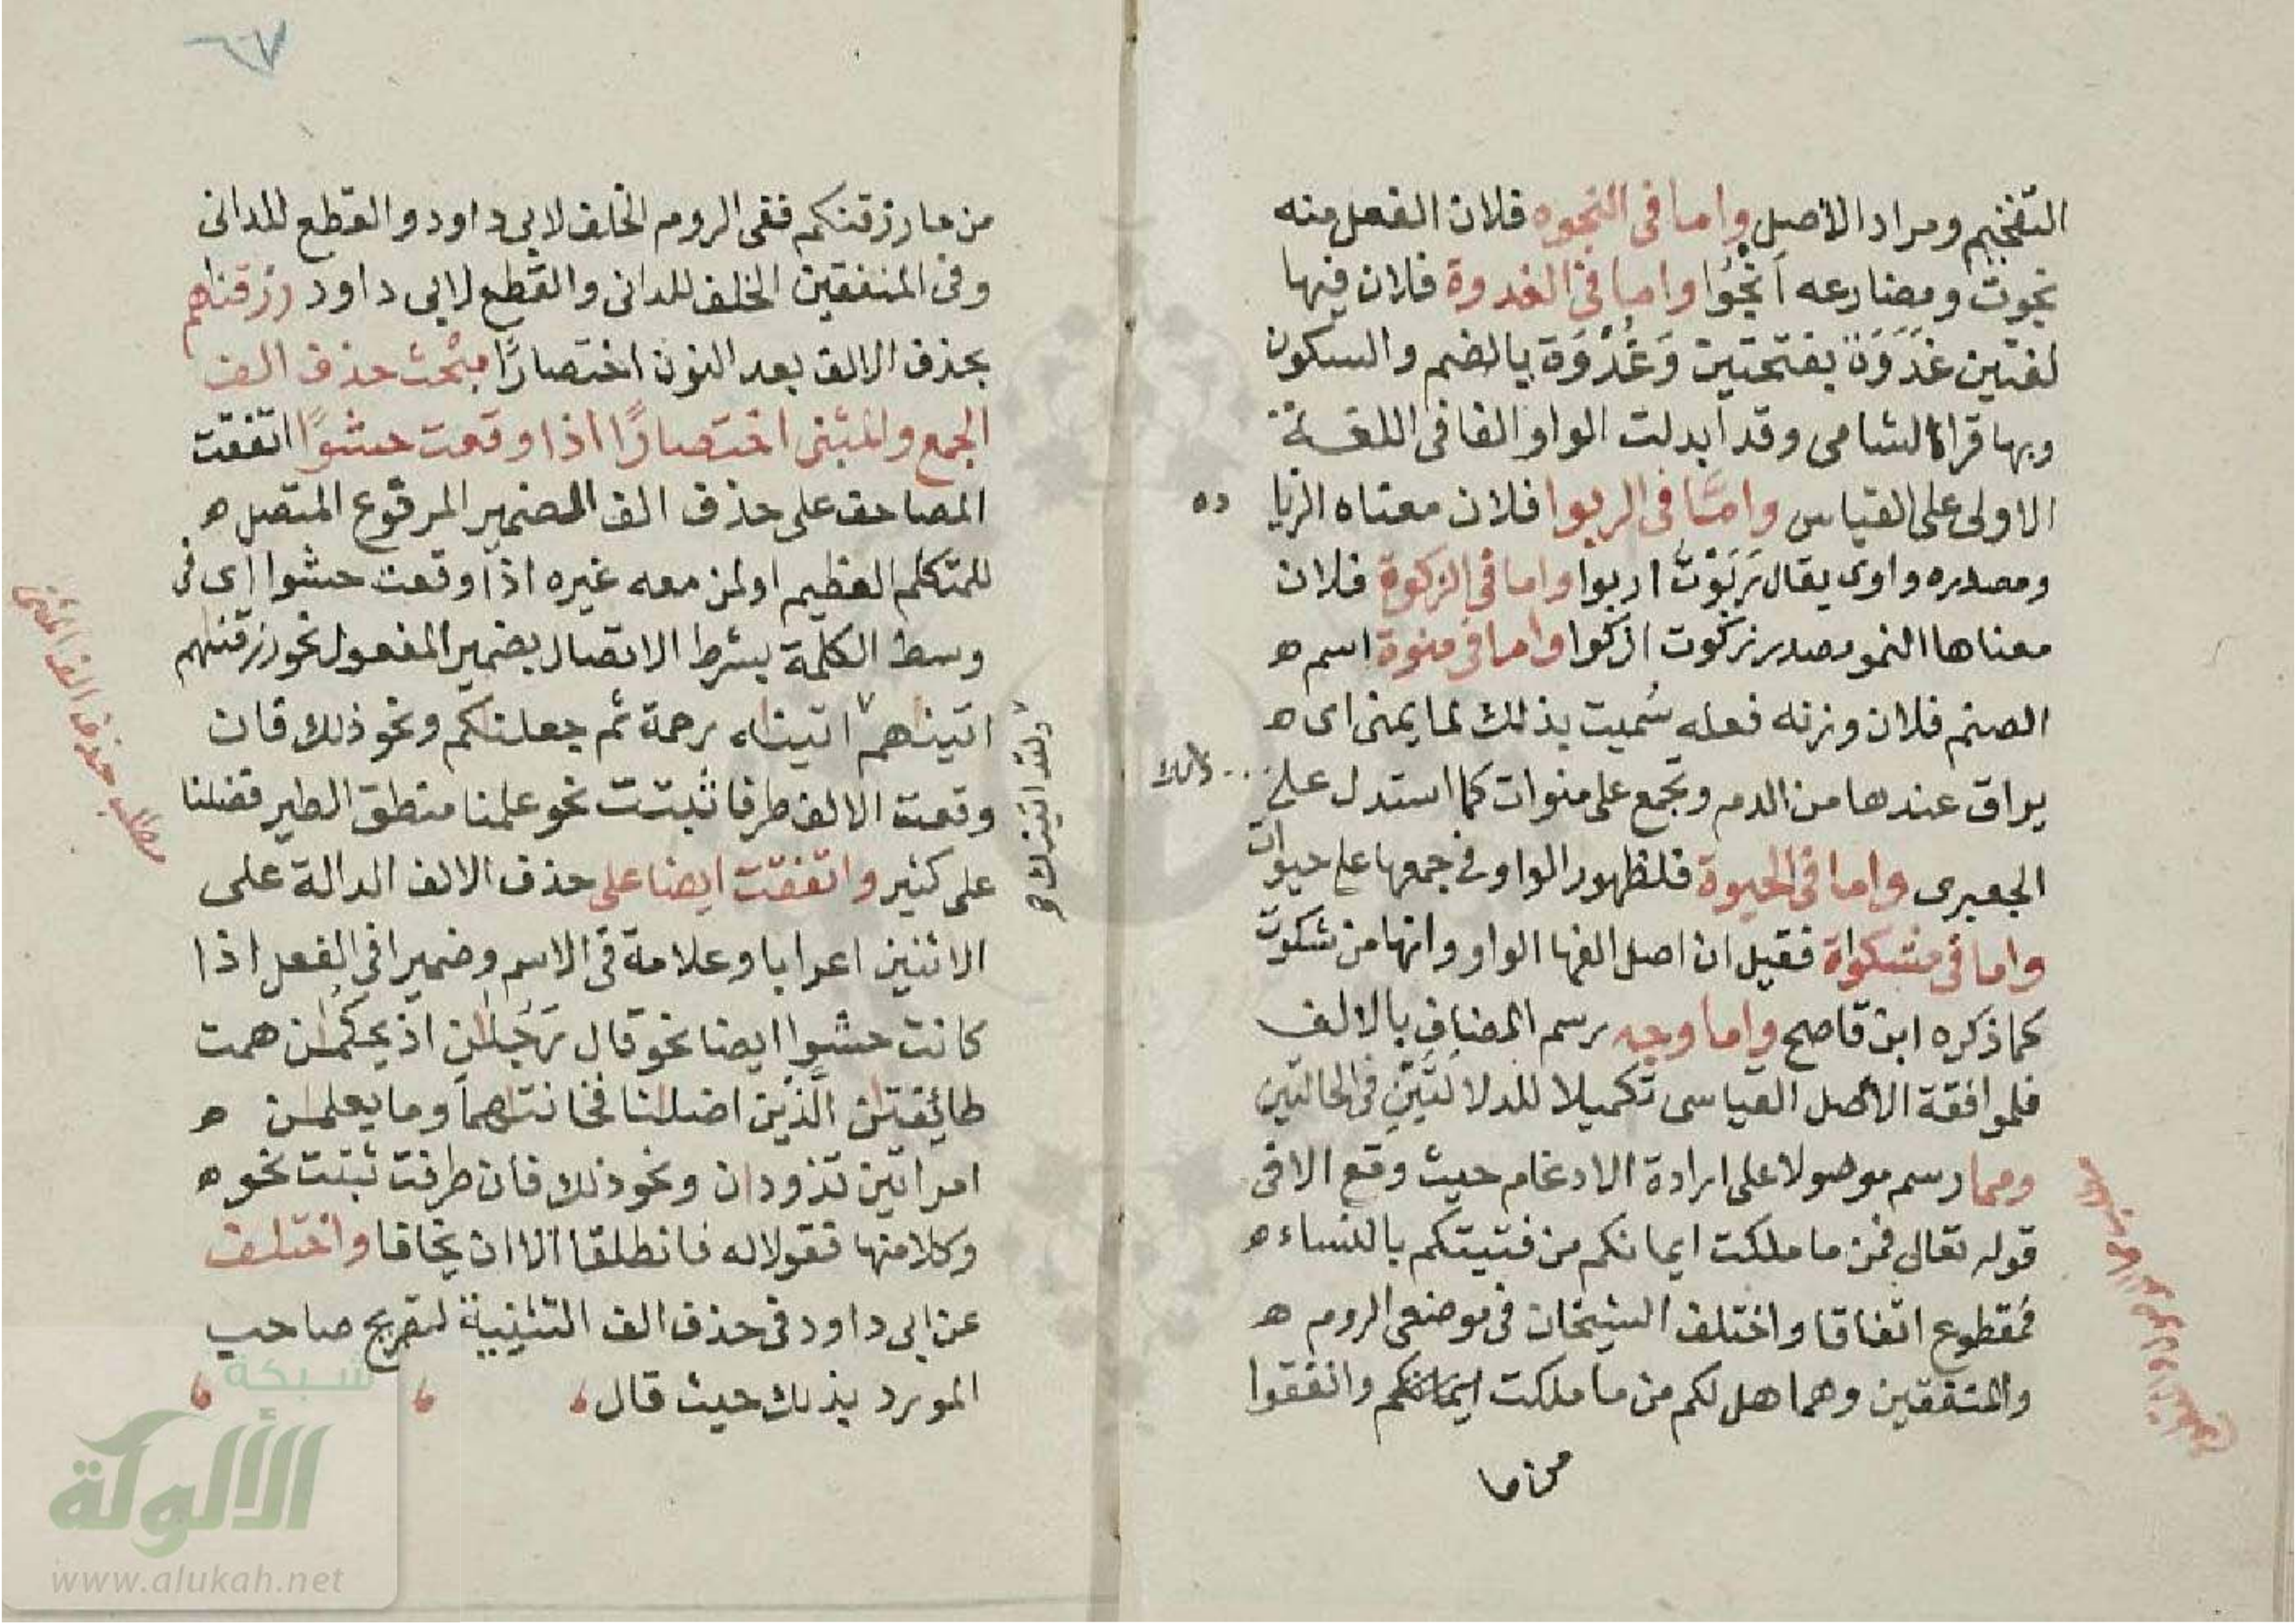 التفخيم ومراد الاصل واما في النجوه فلان الفعل منه
نجوت ومضارعه انجُوا واما في الغدوة فلان فيها
لغتين غَدَوَة بفتحتين وَغُدْوَة بالضم والسكون
وبها قراة الشامى وقد ابدلت الواو الفا فى اللغة
الاولى على القياس وامَّا فى الربوا فلان معناه الزيا ده
ومصدره واوى يقال رَبَوْتُ اربوا واما في الزكوة فلان
معناها النمو مصدر زكوت ازكوا واما فى منوة اسم ه
الصنم فلان وزنه فعله سُميت بذلك لما يمنى اى ه
يراق عندها من الدم وتجمع على منوات كما استدل عليه
الجعبرى واما فى الحيوة فلظهور الواو في جمعها على حيوات
واما فى مشكواة فقيل ان اصل الفها الواو وانها من شكوت
كما ذكره ابن قاصح واما وجه رسم المضاف بالالف
فلموافقة الاصل القياسى تكميلا للدلالتين فى الحالتين
ومما رسم موصولا على ارادة الادغام حيث وقع الا فى
قوله تعالى فمن ما ملكت ايمانكم من فتيتكم بالنساء ه
فمقطوع اتفاقا واختلف الشيخان فى موضعى الروم ه
والمنفقين وهما هل لكم من ما ملكت ايمانكم وانفقوا
من ما
٦٧
من ما رزقنكم ففى الروم الخلف لابى داود والقطع للدانى
وفى المنفقين الخلف للدانى والقطع لابى داود رزقناهم
بحذف الالف بعد النون اختصارًا مبْحث حذف الف
الجمع والمثنى اختصارًا اذا وقعت حشوًا اتفقت
المصاحف على حذف الف الضمير المرفوع المتصل ه
للمتكلم العظيم او لمن معه غيره اذا وقعت حشوا اى فى
وسط الكلمة بشرط الاتصال بضمير المفعول نحو رزقنهم
اتيناهم اتيناه رحمة ثم جعلنكم ونحو ذلك فان
ولقد اتينك
وقعت الالف طرفا ثبتت نحو علمنا منطق الطير فضلنا
على كثير واتفقت ايضا على حذف الالف الدالة على
الاثنين اعرابا وعلامة فى الاسم وضميرا فى الفعل اذا
كانت حشوا ايضا نحو قال رَجُلن اذ يحكمن همت
طائفتن الَّذين اضلنا فخانتهما وما يعلمن ه
امراتين تذودان ونحو ذلك فان طرفت ثبتت نحو ه
وكلا منها فقولا له فانطلقا الا ان يخافا واختلف
عن ابى داود فى حذف الف التثنية لتصريح صاحب
المورد بذلك حيث قال
مطلب حذف الف المثنى
شبكة
الألوكة
www.alukah.net